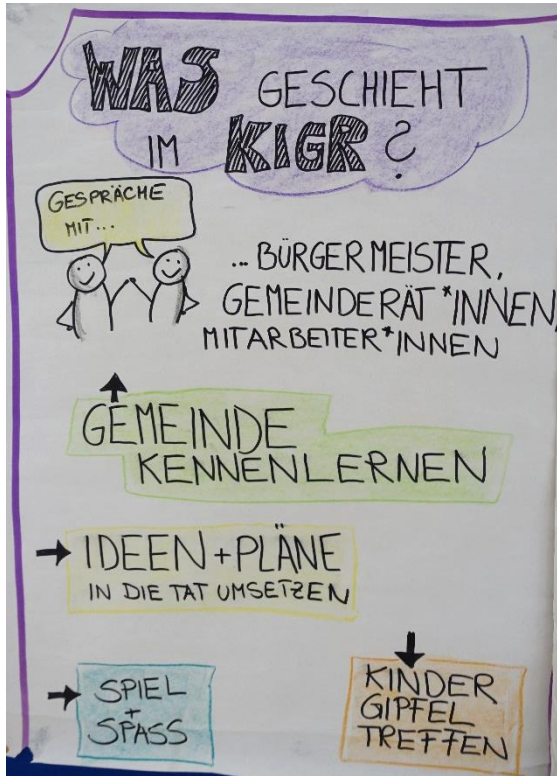 WAS GESCHIEHT
IM KIGR?
GESPRÄCHE
MIT...
...BÜRGERMEISTER,
GEMEINDERÄT*INNEN,
MITARBEITER*INNEN
GEMEINDE
KENNENLERNEN
IDEEN+PLÄNE
IN DIE TAT UMSETZEN
SPIEL
+
SPASS
KINDER
GIPFEL
TREFFEN